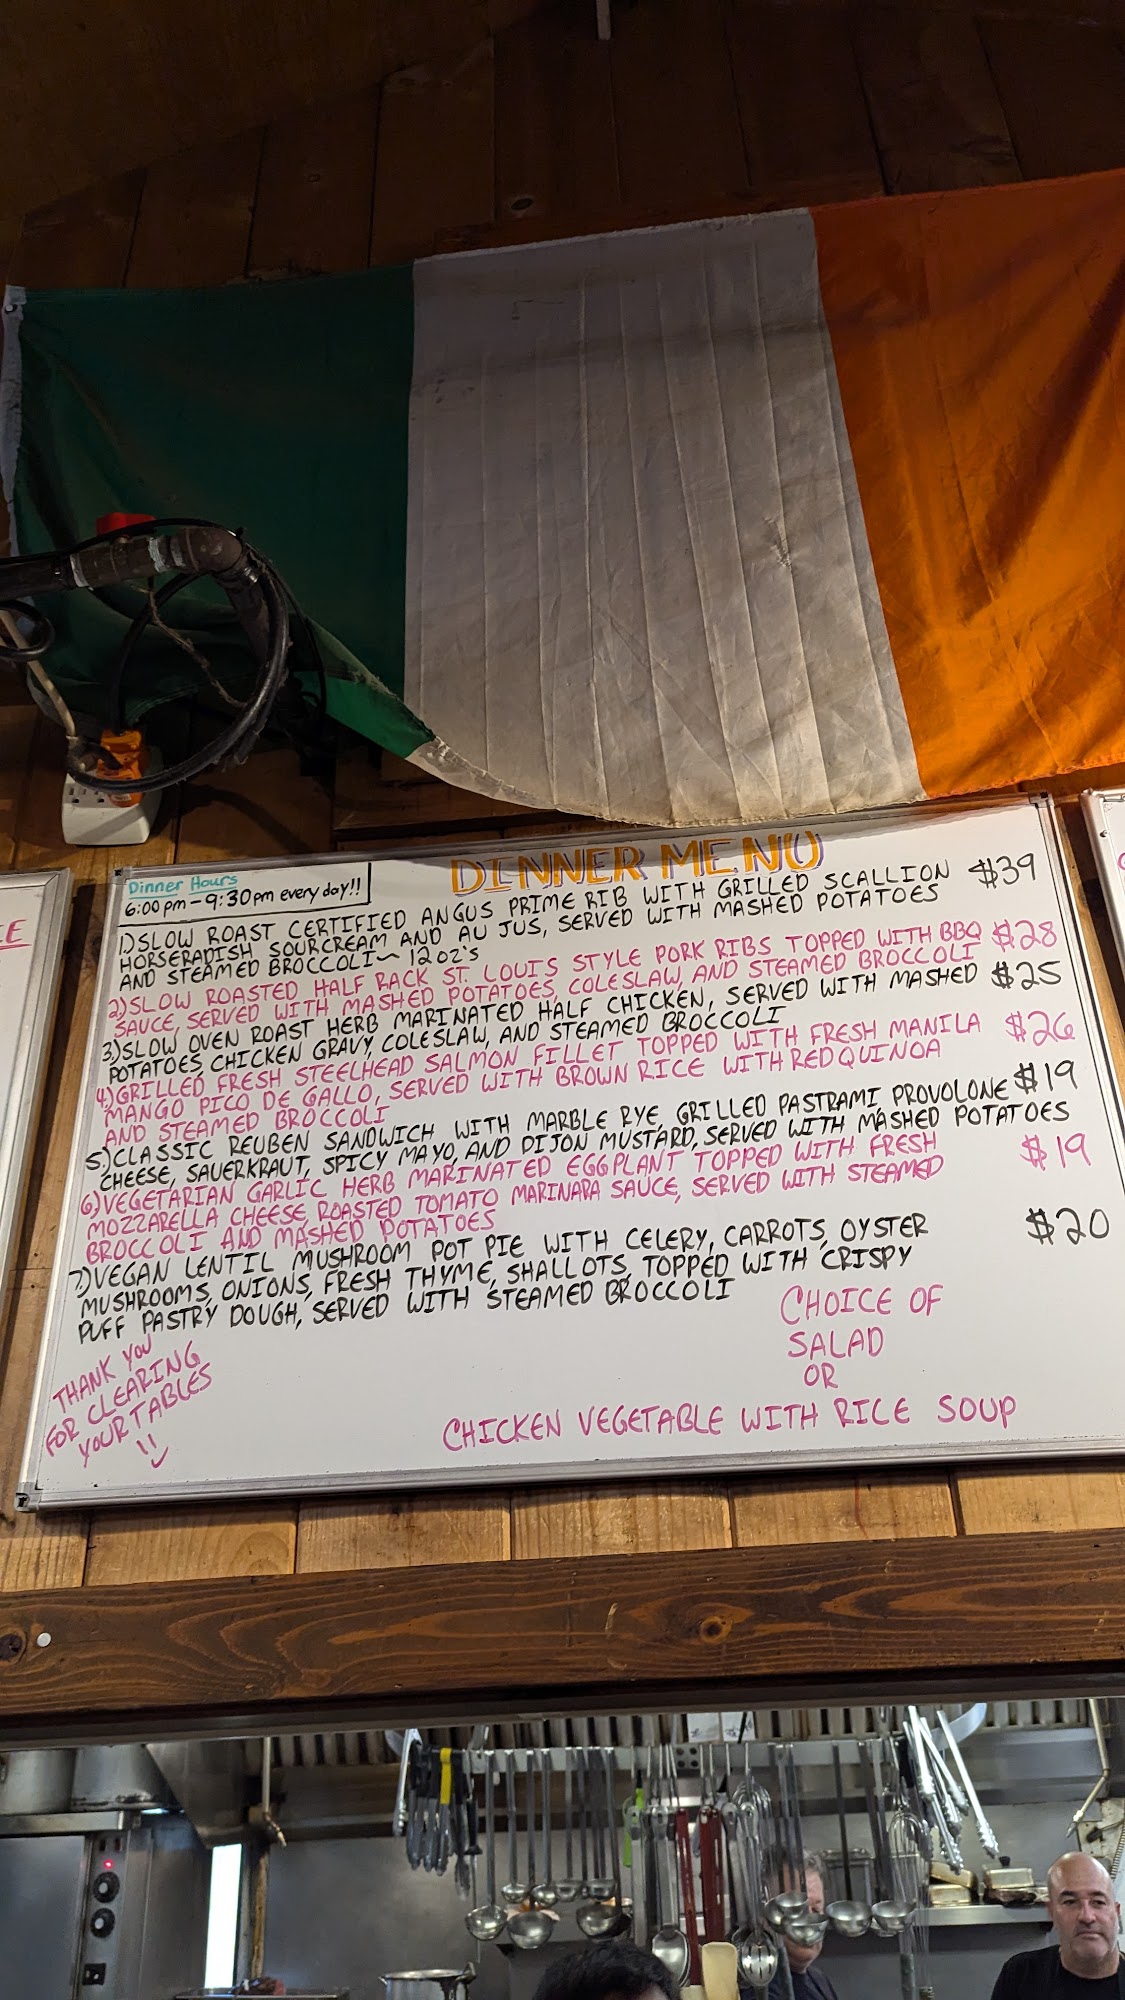 DINNER MENU
Dinner Hours
6:00 pm - 9:30 pm every day!!
1.) SLOW ROAST CERTIFIED ANGUS PRIME RIB WITH GRILLED SCALLION $39
HORSERADISH SOURCREAM AND AU JUS, SERVED WITH MASHED POTATOES
AND STEAMED BROCCOLI~ 12 OZ'S
2.) SLOW ROASTED HALF RACK ST. LOUIS STYLE PORK RIBS TOPPED WITH BBQ $28
SAUCE, SERVED WITH MASHED POTATOES, COLESLAW, AND STEAMED BROCCOLI
3.) SLOW OVEN ROAST HERB MARINATED HALF CHICKEN, SERVED WITH MASHED $25
POTATOES, CHICKEN GRAVY, COLESLAW, AND STEAMED BROCCOLI
4.) GRILLED FRESH STEELHEAD SALMON FILLET TOPPED WITH FRESH MANILA $26
MANGO PICO DE GALLO, SERVED WITH BROWN RICE WITH RED QUINOA
AND STEAMED BROCCOLI
5.) CLASSIC REUBEN SANDWICH WITH MARBLE RYE, GRILLED PASTRAMI, PROVOLONE $19
CHEESE, SAUERKRAUT, SPICY MAYO, AND DIJON MUSTARD, SERVED WITH MASHED POTATOES
6.) VEGETARIAN GARLIC HERB MARINATED EGGPLANT TOPPED WITH FRESH $19
MOZZARELLA CHEESE, ROASTED TOMATO MARINARA SAUCE, SERVED WITH STEAMED
BROCCOLI AND MASHED POTATOES
7.) VEGAN LENTIL MUSHROOM POT PIE WITH CELERY, CARROTS, OYSTER $20
MUSHROOMS, ONIONS, FRESH THYME, SHALLOTS, TOPPED WITH CRISPY
PUFF PASTRY DOUGH, SERVED WITH STEAMED BROCCOLI
CHOICE OF
SALAD
OR
CHICKEN VEGETABLE WITH RICE SOUP
THANK YOU
FOR CLEARING
YOUR TABLES